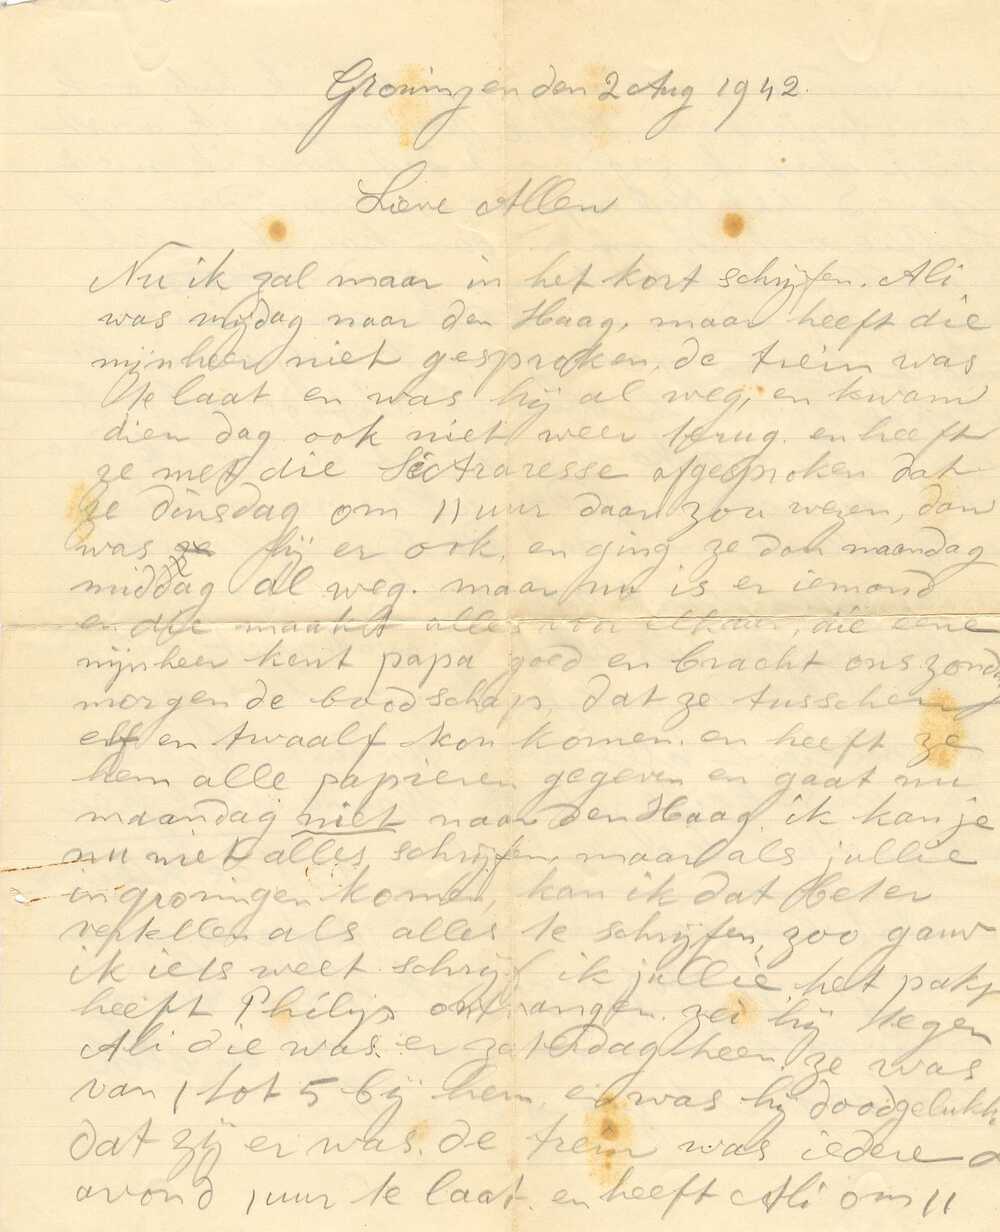 Groningen den 2 Aug 1942.
Lieve Allen
Nu ik zal maar in het kort schrijfen. Ali
was vrijdag naar den Haag, maar heeft die
mijnheer niet gesproken, de trein was
te laat en was hij al weg, en kwam
dien dag ook niet weer terug. en heeft
ze met die Sectraresse afgesproken dat
ze dinsdag om 11 uur daar zou wezen, dan
was hij er ook, en ging ze dan maandag
middag al weg. maar nu is er iemand
en die maakt alles voor elkaar, die eene
mijnheer kent papa goed en bracht ons zondag
morgen de boodschap, dat ze tusschen
elf en twaalf kon komen. en heeft ze
hem alle papieren gegeven en gaat nu
maandag niet naar den Haag. ik kan je
nu niet alles schrijfen, maar als jullie
in groningen komen, kan ik dat beter
vertellen als alles te schrijfen, zoo gauw
ik iets weet schrijf ik jullie het pakje
heeft Philip ontvangen. zei hij tegen
Ali die was er zaterdag heen. ze was
van 1 tot 5 bij hem. en was hij doodgelukk
dat zij er was. de trein was iedere
avond 1 uur te laat. en heeft Ali om 11